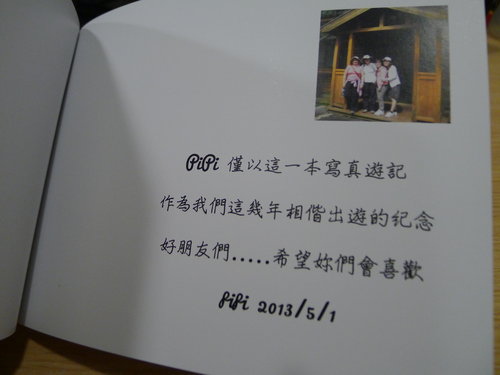 PiPi 僅以這一本寫真遊記
作為我們這幾年相偕出遊的纪念
好朋友們.....希望妳們會喜歡
PiPi 2013/5/1